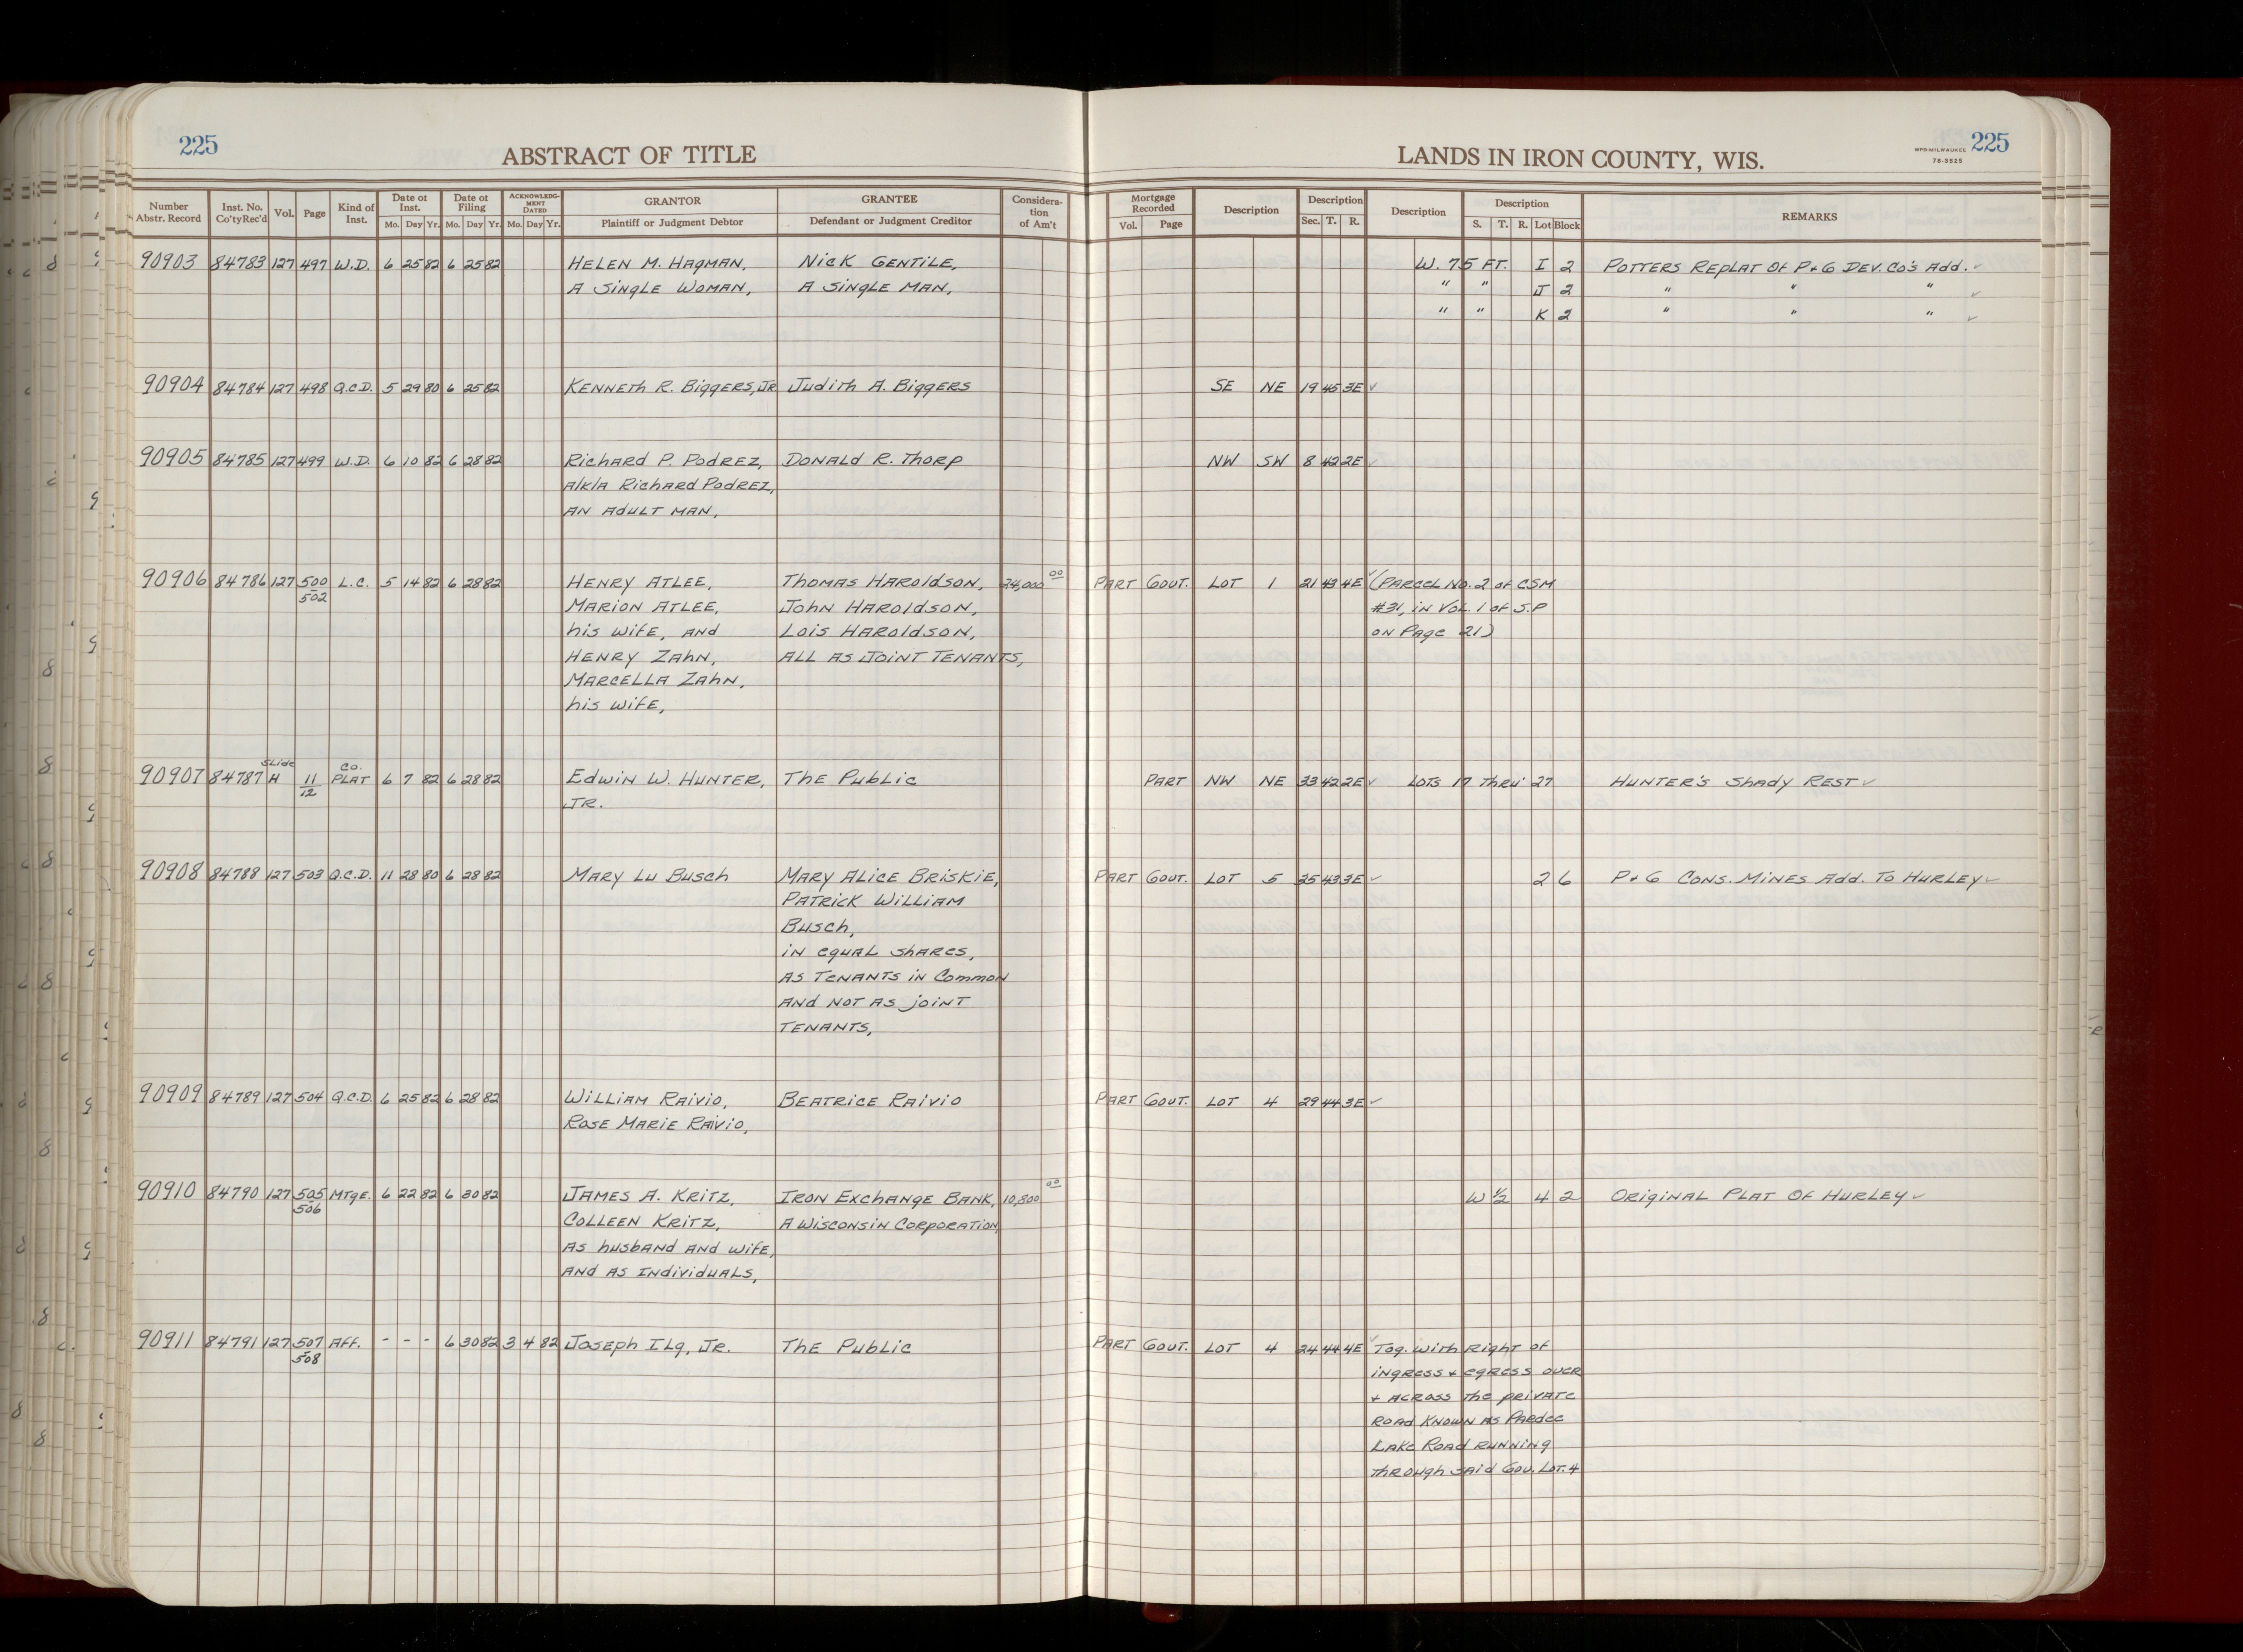 225
ABSTRACT OF TITLE
LANDS IN IRON COUNTY, WIS.
WPB-MILWAUKEE
78-3525
225
Number Abstr. Record | Inst. No. Co'ty Rec'd | Vol. | Page | Kind of Inst. | Date of Inst. Mo. Day Yr. | Date of Filing Mo. Day Yr. | ACKNOWLEDGMENT DATED Mo. Day Yr. | GRANTOR Plaintiff or Judgment Debtor | GRANTEE Defendant or Judgment Creditor | Consideration of Am't | Mortgage Recorded Vol. Page | Description | Description Sec. T. R. | Description | Description S. T. R. Lot Block | REMARKS
90903 84783 127 497 W.D. 6 25 82 6 25 82 HELEN M. HAGMAN, NICK GENTILE, W. 75 FT. I 2 POTTERS REPLAT OF P+G DEV. CO'S ADD. ✓
A SINGLE WOMAN, A SINGLE MAN, " " J 2 " " " ✓
" " K 2 " " " ✓
90904 84784 127 498 Q.C.D. 5 29 80 6 25 82 KENNETH R. BIGGERS, JR. JUDITH A. BIGGERS SE NE 19 45 3E ✓
90905 84785 127 499 W.D. 6 10 82 6 28 82 RICHARD P. PODREZ, DONALD R. THORP NW SW 8 42 2E ✓
A/K/A RICHARD PODREZ,
AN ADULT MAN,
90906 84786 127 500 L.C. 5 14 82 6 28 82 HENRY ATLEE, THOMAS HAROLDSON, 24,000 00 PART GOUT. LOT 1 21 43 4E ✓ (PARCEL NO. 2 OF CSM
502 MARION ATLEE, JOHN HAROLDSON, #31, IN VOL. 1 OF S.P
HIS WIFE, AND LOIS HAROLDSON, ON PAGE 21)
HENRY ZAHN, ALL AS JOINT TENANTS,
MARCELLA ZAHN,
HIS WIFE,
90907 84787 SLIDE H 11/12 CO. PLAT 6 7 82 6 28 82 EDWIN W. HUNTER, THE PUBLIC PART NW NE 33 42 2E ✓ LOTS 17 THRU' 27 HUNTER'S SHADY REST ✓
JR.
90908 84788 127 503 Q.C.D. 11 28 80 6 28 82 MARY LU BUSCH MARY ALICE BRISKIE, PART GOUT. LOT 5 25 43 3E ✓ 2 6 P+G CONS. MINES ADD. TO HURLEY ✓
PATRICK WILLIAM
BUSCH,
IN EQUAL SHARES,
AS TENANTS IN COMMON
AND NOT AS JOINT
TENANTS,
90909 84789 127 504 Q.C.D. 6 25 82 6 28 82 WILLIAM RAIVIO, BEATRICE RAIVIO PART GOUT. LOT 4 29 44 3E ✓
ROSE MARIE RAIVIO,
90910 84790 127 505 MTGE. 6 22 82 6 30 82 JAMES A. KRITZ, IRON EXCHANGE BANK, 10,800 00 W 1/2 4 2 ORIGINAL PLAT OF HURLEY ✓
506 COLLEEN KRITZ, A WISCONSIN CORPORATION,
AS HUSBAND AND WIFE,
AND AS INDIVIDUALS,
90911 84791 127 507 AFF. - - - 6 30 82 3 4 82 JOSEPH ILG, JR. THE PUBLIC PART GOUT. LOT 4 24 44 4E ✓ TOG. WITH RIGHT OF
508 INGRESS + EGRESS OVER
+ ACROSS THE PRIVATE
ROAD KNOWN AS PARDEE
LAKE ROAD RUNNING
THROUGH SAID GOV. LOT. 4